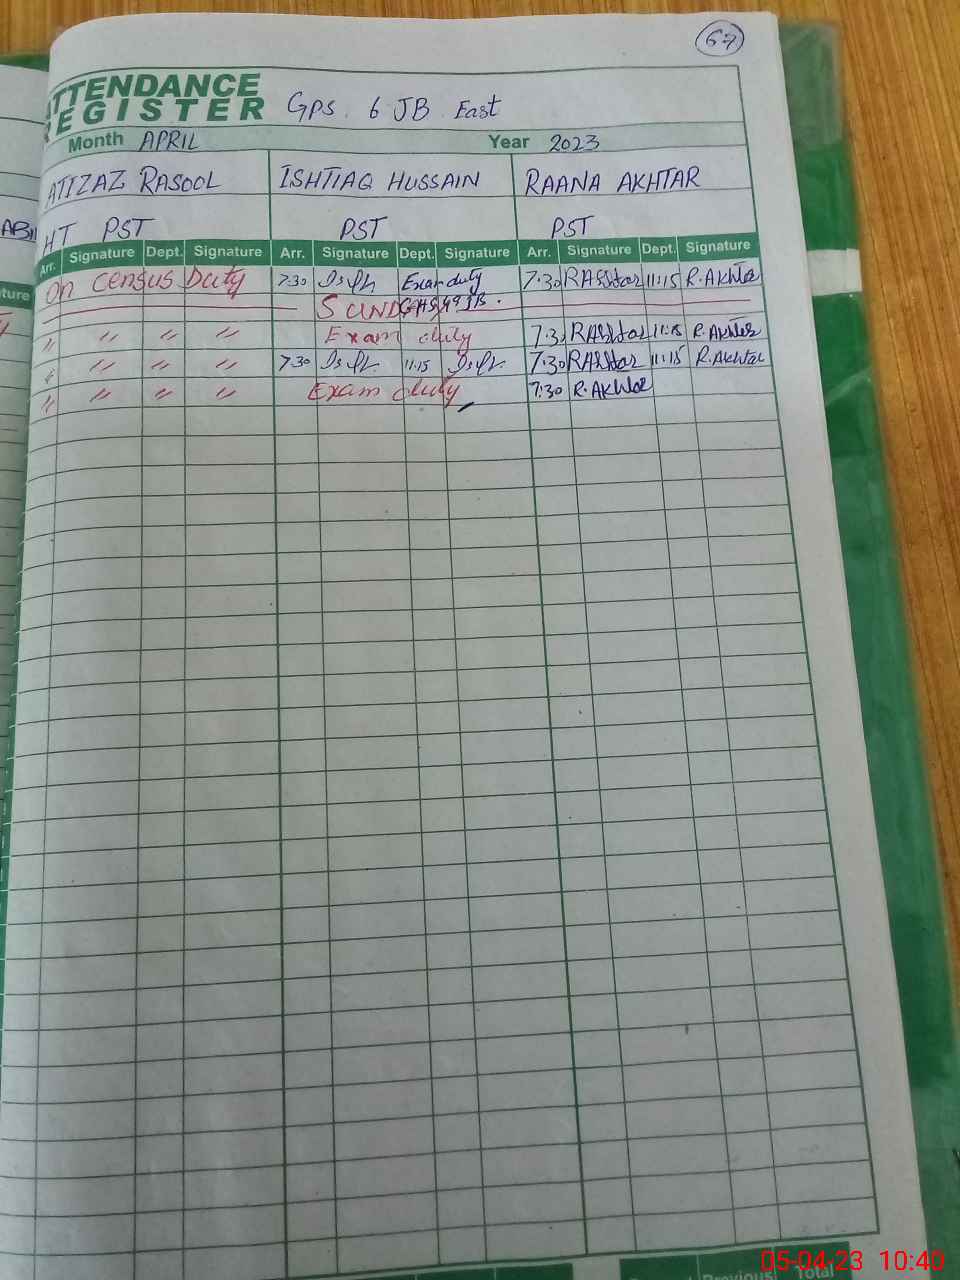 67
ATTENDANCE
REGISTER GPS. 6 JB East
Month APRIL Year 2023
ATIZAZ RASOOL ISHTIAQ HUSSAIN RAANA AKHTAR
ABI HT PST PST PST
Arr. Signature Dept. Signature Arr. Signature Dept. Signature Arr. Signature Dept. Signature
ture On Census Duty 7:30 Exam duty 7:30 11:15 R.Akhtar
SUNDAY
" " " " Exam duty 7:30 11:15 R.Akhtar
" " " " 7:30 11:15 7:30 11:15 R.Akhtar
" " " " Exam duty 7:30 R.Akhtar
Previous Total
05-04-23 10:40